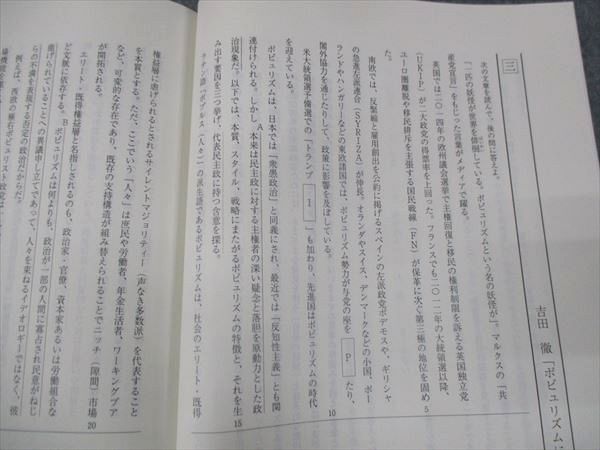 三
吉田 徹「ポピュリズムに
次の文章を読んで、後の問に答えよ。
「一匹の妖怪が世界を徘徊している。ポピュリズムという名の妖怪が」。マルクスの『共
産党宣言』をもじった言葉がメディアで躍る。
英国では二〇一四年の欧州議会選挙で主権回復と移民の権利制限を訴える英国独立党
(UKIP)が二大政党の得票率を上回った。フランスでも二〇一二年の大統領選以降、
ユーロ圏離脱や移民排斥を主張する国民戦線(FN)が保革に次ぐ第三極の地位を固め 5
た。
南欧では、反緊縮と雇用創出を公約に掲げるスペインの左派政党ポデモスや、ギリシャ
の急進左派連合(SYRIZA)が伸長。オランダやスイス、デンマークなどの小国、ポー
ランドやハンガリーなどの東欧諸国では、ポピュリズム勢力が与党の座を P たり、
閣外協力を通じたりして、政策に影響を及ぼしている。 10
米大統領選予備選での「トランプ 1 」も加わり、先進国はポピュリズムの時代
を迎えている。
ポピュリズムは、日本では「衆愚政治」と同義にされ、最近では「反知性主義」とも関
連付けられる。しかし、A本来は民主政に対する主権者の深い疑念と落胆を原動力とした政
治現象だ。以下では、本質、スタイル、戦略にまたがるポピュリズムの特徴と、それを生 15
み出す要因を三つ挙げ、代表民主政に持つ含意を探る。
ラテン語「ポプルス(人々)」の派生語であるポピュリズムは、社会のエリート・既得
権益層に虐げられるとされるサイレントマジョリティー(声なき多数派)を代表すること
を本質とする。ただ、ここでいう「人々」は庶民や労働者、年金生活者、ワーキングプア
など、可変的な存在であり、既存の支持構造が組み替えられることでニッチ(隙間)市場
が開拓される。 20
エリート・既得権益層と名指しされるのも、政治家・官僚、資本家あるいは労働組合な
ど文脈に依存する。Bポピュリズムは何よりも、政治が一部の人間に寡占され民意がねじ
曲げられていることへの異議申し立てであって、人々を束ねるイデオロギーではなく、彼
らの不満を表現する否定の政治だからだ。
例えば、西欧の極右ポピュリスト政党は